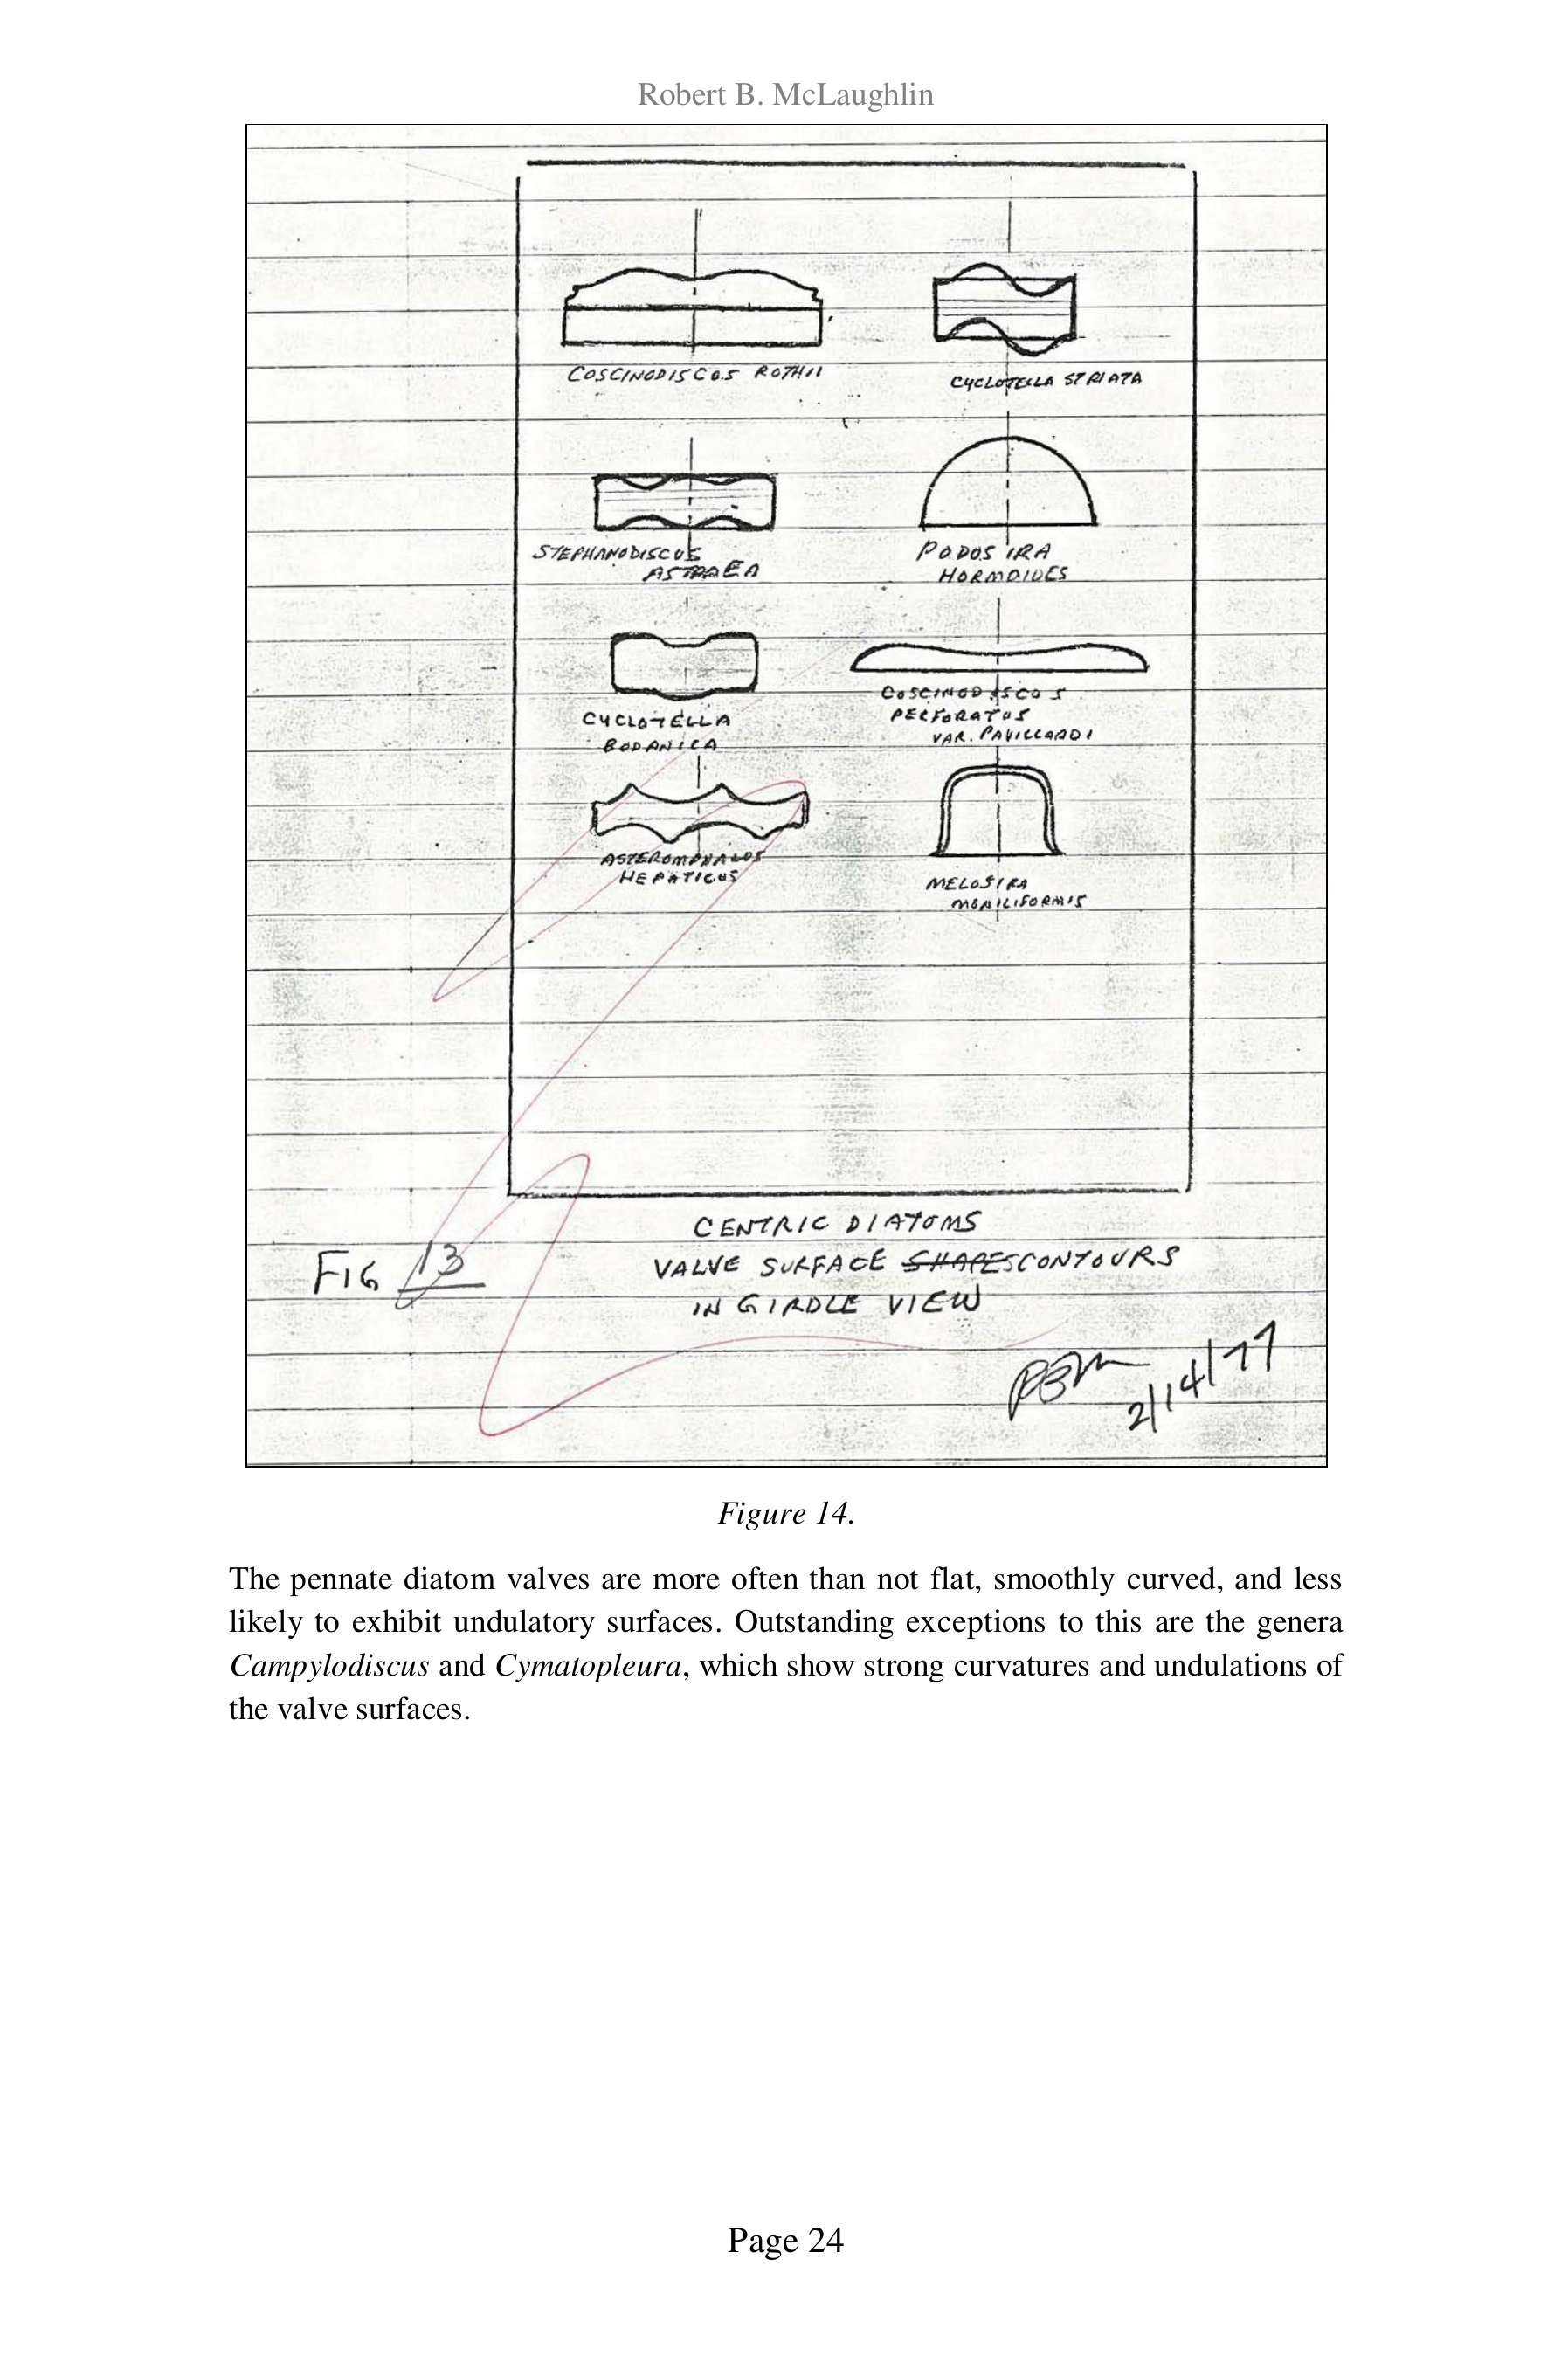 Robert B. McLaughlin
COSCINODISCOS ROTHII
CYCLOTELLA STRIATA
STEPHANODISCUS
ASTRAEA
PODOSIRA
HORMOIDES
CYCLOTELLA
BODANICA
COSCINODISCOS
PERFORATUS
VAR. PAVILLARDI
ASTEROMPHALOS
HEPATICUS
MELOSIRA
MONILIFORMIS
CENTRIC DIATOMS
VALVE SURFACE SHAPES CONTOURS
IN GIRDLE VIEW
FIG 13
RBM 2/14/77
Figure 14.
The pennate diatom valves are more often than not flat, smoothly curved, and less
likely to exhibit undulatory surfaces. Outstanding exceptions to this are the genera
Campylodiscus and Cymatopleura, which show strong curvatures and undulations of
the valve surfaces.
Page 24